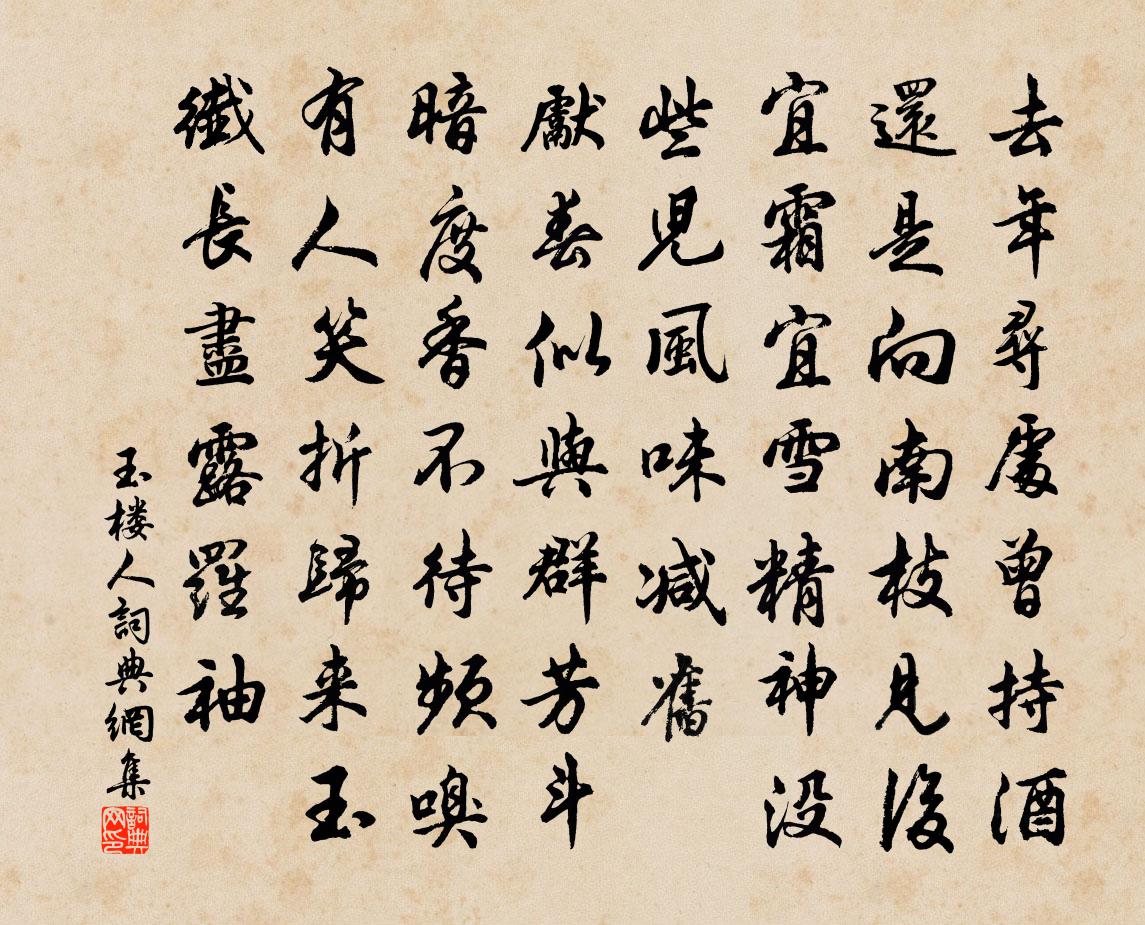 去年尋處曾持酒
還是向南枝見後
宜霜宜雪精神没
些兒風味減舊
獻春似與群芳斗
暗度香不待頻嗅
有人笑折歸来玉
纖長盡露羅袖
玉楼人詞典網集
詞典網印